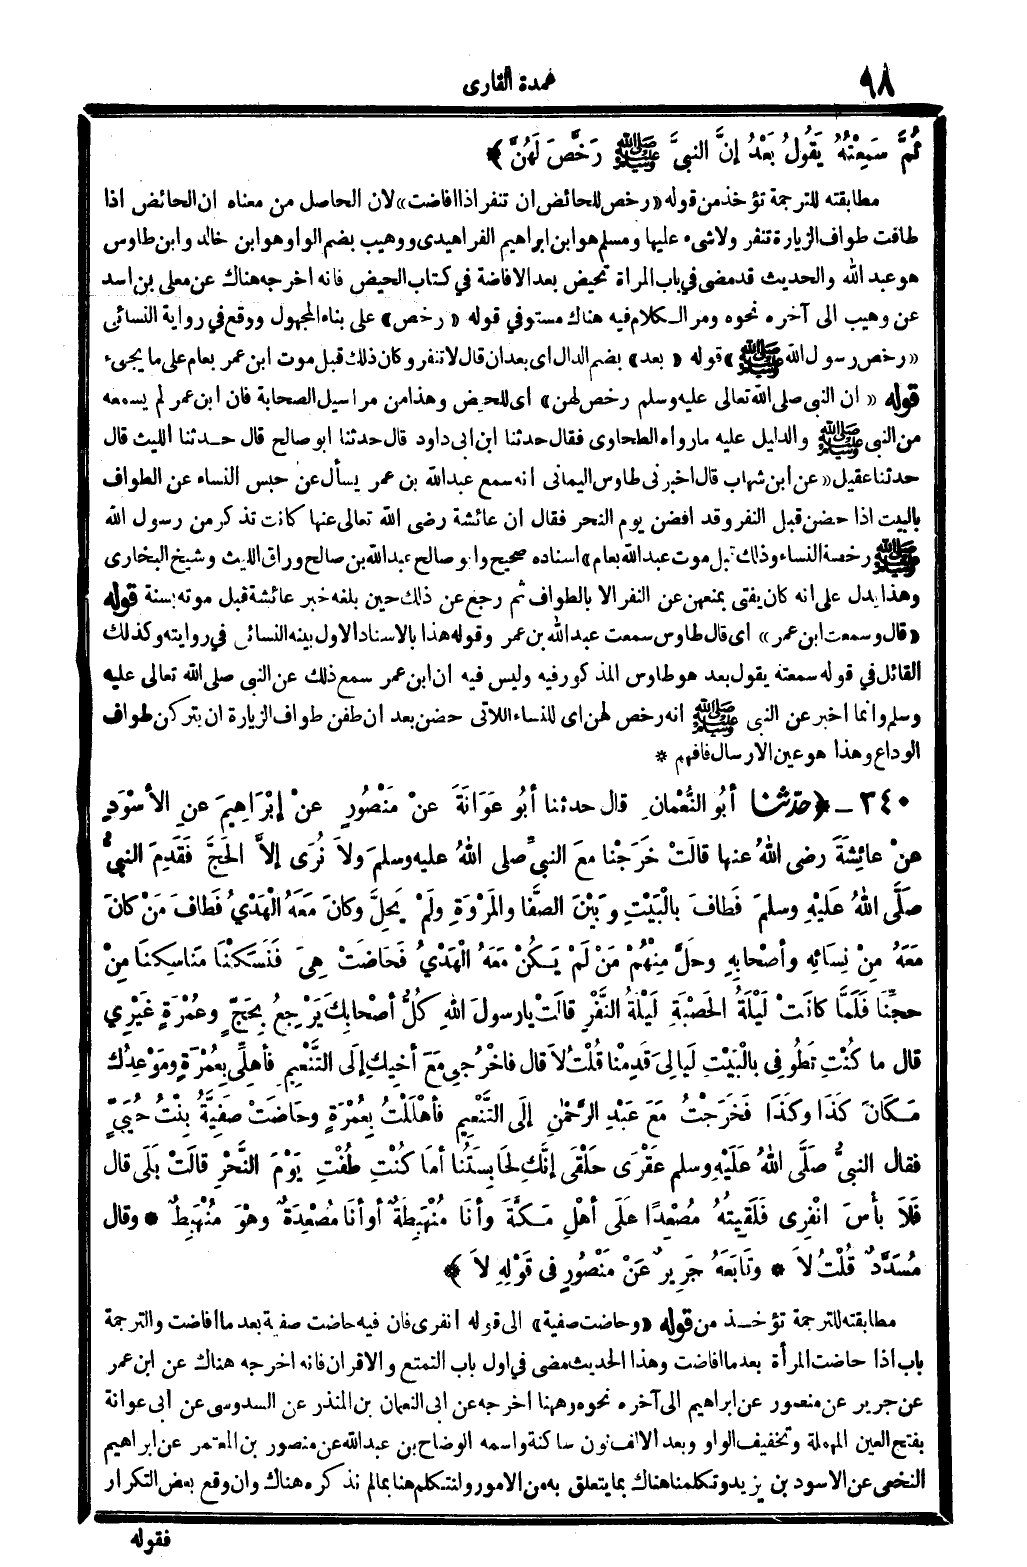 ٩٨
عمدة القارى
ثُمَّ سَمِعْتُهُ يَقُولُ بَعْدُ إنَّ النبيَّ ﷺ رَخَّصَ لَهُنَّ ﴾
مطابقته للترجمة تؤخذ من قوله «رخص للحائض ان تنفر اذا افاضت» لان الحاصل من معناه ان الحائض اذا
طافت طواف الزيارة تنفر ولاشىء عليها ومسلم هو ابن ابراهيم الفراهيدى ووهيب بضم الواو هو ابن خالد وابن طاوس
هو عبد الله والحديث قد مضى في باب المرأة تحيض بعد الافاضة في كتاب الحيض فانه اخرجه هناك عن معلى بن اسد
عن وهيب الى آخره نحوه ومر الكلام فيه هناك مستوفي قوله «رخص» على بناء المجهول ووقع في رواية النسائى
«رخص رسول الله ﷺ» قوله «بعد» بضم الدال اى بعد ان قال لاتنفر وكان ذلك قبل موت ابن عمر بعام على ما يجىء
قوله «ان النبى صلى الله تعالى عليه وسلم رخص لهن» اى للحيض وهذا من مراسيل الصحابة فان ابن عمر لم يسمعه
من النبى ﷺ والدليل عليه مارواه الطحاوى فقال حدثنا ابن ابى داود قال حدثنا ابو صالح قال حدثنا الليث قال
حدثنا عقيل «عن ابن شهاب قال اخبرنى طاوس اليمانى انه سمع عبدالله بن عمر يسأل عن حبس النساء عن الطواف
بالبيت اذا حضن قبل النفر وقد افضن يوم النحر فقال ان عائشة رضى الله تعالى عنها كانت تذكر من رسول الله
ﷺ رخصة النساء وذلك قبل موت عبدالله بعام» اسناده صحيح وابو صالح عبدالله بن صالح وراق الليث وشيخ البخارى
وهذا يدل على انه كان يفتى بمنعهن عن النفر الا بالطواف ثم رجع عن ذلك حين بلغه خبر عائشة قبل موته بسنة قوله
«قال وسمعت ابن عمر» اى قال طاوس سمعت عبدالله بن عمر وقوله هذا بالاسناد الاول بينه النسائى في روايته وكذلك
القائل في قوله سمعته يقول بعد هو طاوس المذكور فيه وليس فيه ان ابن عمر سمع ذلك عن النبى صلى الله تعالى عليه
وسلم وانما اخبر عن النبى ﷺ انه رخص لهن اى للنساء اللاتى حضن بعد ان طفن طواف الزيارة ان يتركن طواف
الوداع وهذا هو عين الارسال فافهم *
٣٤٠ ـ ﴿ حدثنا أبُو النُّعْمانِ قال حدثنا أبُو عَوَانَةَ عنْ مَنْصُورٍ عنْ إبْرَاهِيمَ عنِ الأسْوَدِ
عنْ عائِشَةَ رضى اللهُ عنها قالَتْ خَرَجْنا معَ النبيِّ صلى اللهُ عليه وسلم ولاَ نُرَى إلاَّ الحَجَّ فَقَدِمَ النبيُّ
صلَّى اللهُ عَلَيْهِ وسلمَ فَطافَ بالْبَيْتِ وبَيْنَ الصَّفا والمَرْوَةِ ولَمْ يَحِلَّ وكانَ مَعَهُ الْهَدْيُ فَطافَ مَنْ كانَ
مَعَهُ مِنْ نِسَائِهِ وأصْحابِهِ وحَلَّ مِنْهُمْ مَنْ لَمْ يَكُنْ مَعَهُ الْهَدْيُ فَحَاضَتْ هِىَ فَنَسَكْنَا مَناسِكَنا مِنْ
حجِّنَا فَلَمَّا كانَتْ لَيْلَةُ الحَصْبَةِ لَيْلَةُ النَّفْرِ قالَتْ يا رسولَ اللهِ كُلُّ أصْحابِكَ يَرْجِعُ بِحَجٍّ وعُمْرَةٍ غَيْرِي
قال ما كُنْتِ تَطُوفى بالْبَيْتِ لَيالِىَ قَدِمْنا قُلْتُ لاَ قال فاخْرُجى مَعَ أخيكِ إلَى التَّنْعِيمِ فأهِلِّى بِعُمْرَةٍ ومَوْعِدُكَ
مَكانَ كَذَا وكَذَا فَخَرَجْتُ مَعَ عَبْدِ الرَّحْمٰنِ إلَى التَّنْعِيمِ فأهْلَلْتُ بِعُمْرَةٍ وحاضَتْ صَفِيَّةُ بِنْتُ حُيَيٍّ
فقال النبيُّ صَلَّى اللهُ عَلَيْهِ وسلم عَقْرَى حَلْقَى إنَّكِ لَحَابِسَتُنا أما كُنْتِ طُفْتِ يَوْمَ النَّحْرِ قالَتْ بَلَى قال
فَلاَ بأسَ انْفِرِى فَلَقِيتُهُ مُصْعِدًا علَى أهْلِ مَكَّةَ وأنَا مُنْهَبِطَةٌ أوْ أنَا مُصْعِدَةٌ وهْوَ مُنْهَبِطٌ * وقال
مُسَدَّدٌ قُلْتُ لاَ * وتابَعَهُ جَرِيرٌ عَنْ مَنْصُورٍ فى قَوْلِهِ لاَ ﴾ *
مطابقته للترجمة تؤخذ من قوله «وحاضت صفية» الى قوله انفرى فان فيه حاضت صفية بعد ما افاضت والترجمة
باب اذا حاضت المرأة بعد ما افاضت وهذا الحديث مضى في اول باب التمتع والاقران فانه اخرجه هناك عن ابن عمر
عن جرير عن منصور عن ابراهيم الى آخره نحوه وههنا اخرجه عن ابى النعمان بن المنذر عن السدوسى عن ابى عوانة
بفتح العين المهملة وتخفيف الواو وبعد الالف نون ساكنة واسمه الوضاح بن عبدالله عن منصور بن المعتمر عن ابراهيم
النخعى عن الاسود بن يزيد وتكلمنا هناك بما يتعلق به من الامور ولنتكلم هنا بمالم نذكره هناك وان وقع بعض التكرار
فقوله